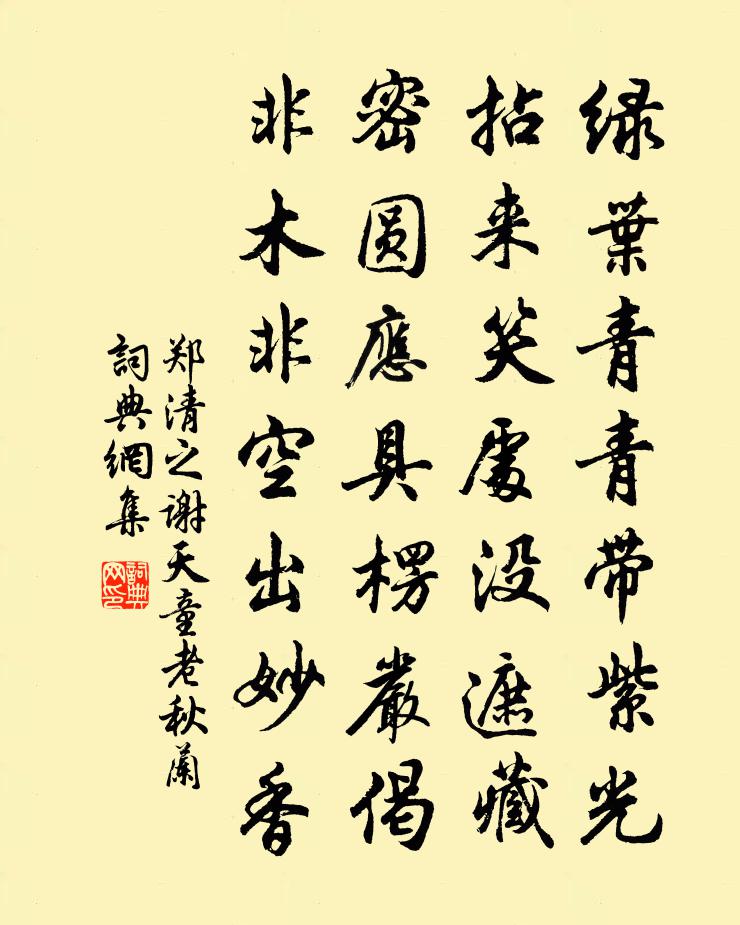 绿葉青青带紫光
拈来笑處没遮藏
密圆應具楞嚴偈
非木非空出妙香
郑清之谢天童老秋蘭
詞典網集
詞典网印